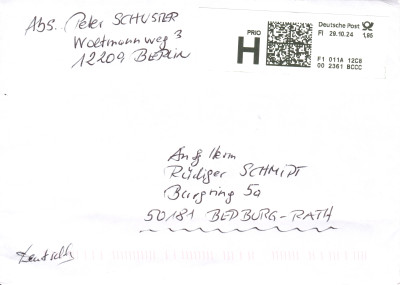 Abs. Peter SCHUSTER
Woltmannweg 3
12209 BERLIN
PRIO
H
Deutsche Post
FI 29.10.24 1,95
F1 011A 12C8
00 2361 BCCC
An Herrn
Rüdiger SCHMIDT
Burgring 5a
50181 BEDBURG-RATH